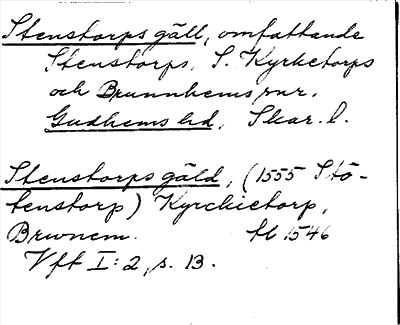 Stenstorps gäll, omfattande
Stenstorps, S. Kyrketorps
och Brunnhems snr.
Gudhems hd, Skar. l.
Stenstorps gäld, (1555 Stö-
tenstorp) Kyrckietorp,
Brwnem. tl 1546
Vft I:2, s. 13.